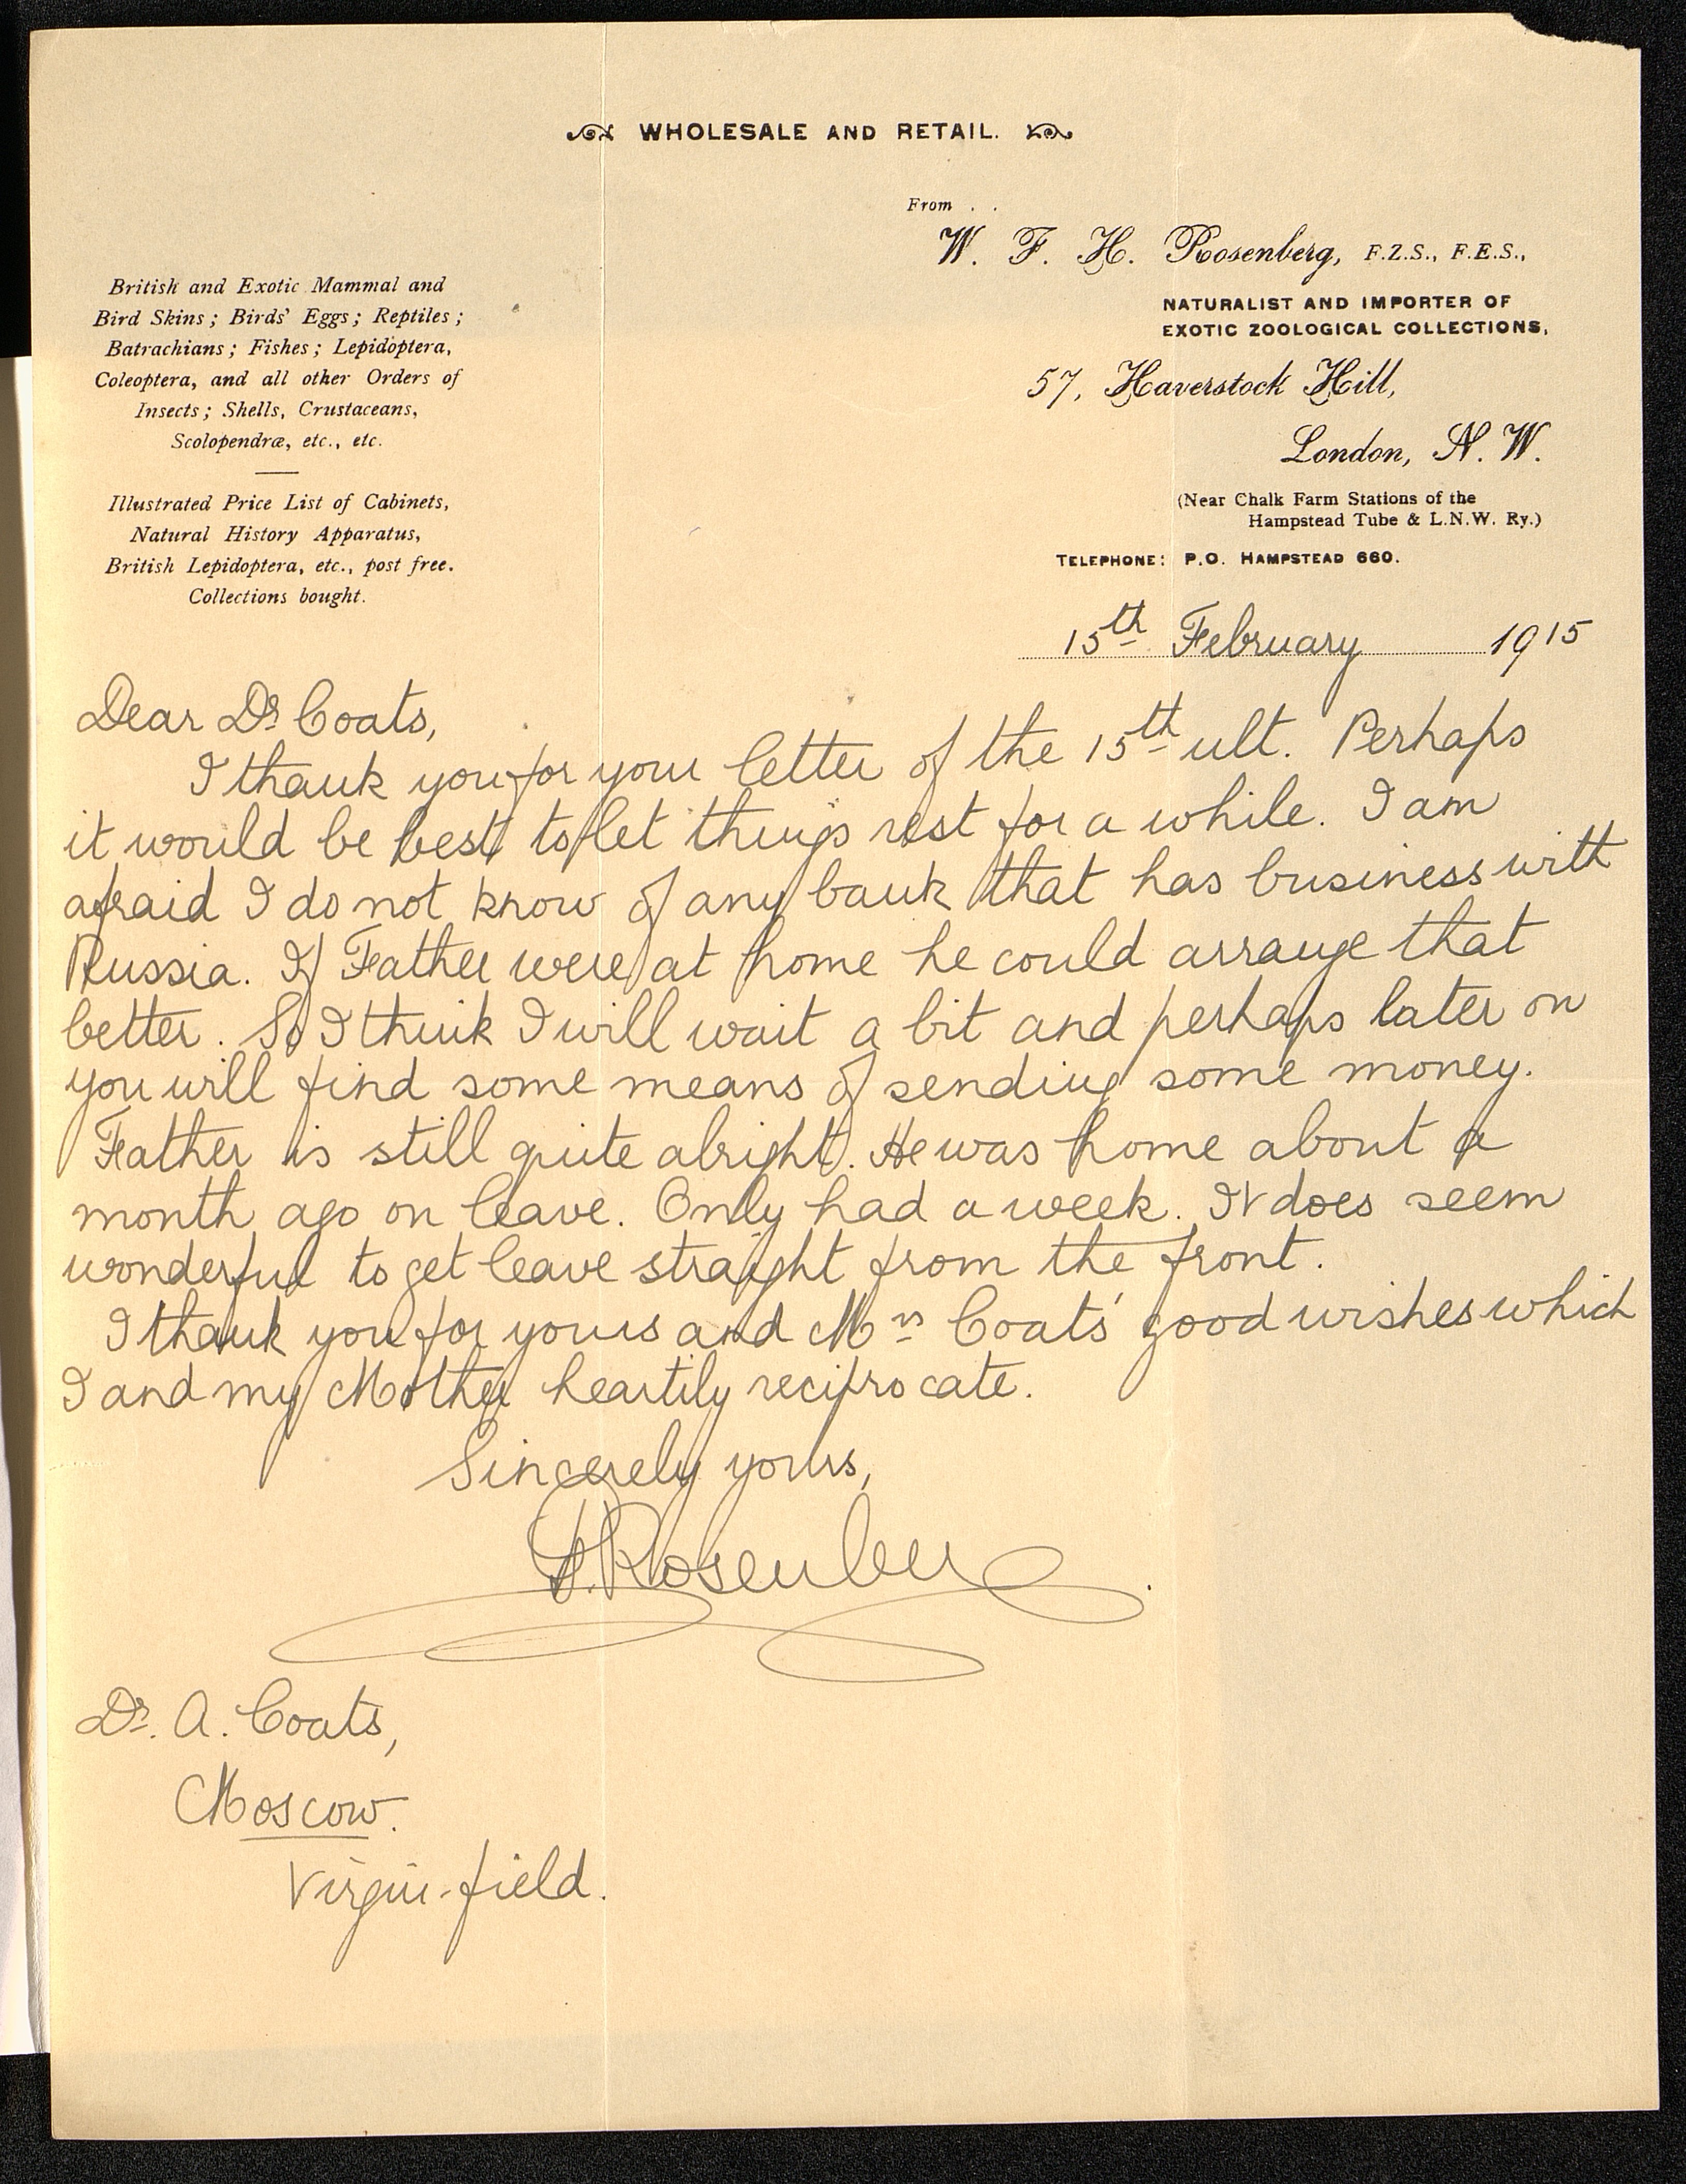 WHOLESALE AND RETAIL.
From . .
W. F. H. Rosenberg, F.Z.S., F.E.S.,
NATURALIST AND IMPORTER OF
EXOTIC ZOOLOGICAL COLLECTIONS,
57, Haverstock Hill,
London, N. W.
(Near Chalk Farm Stations of the
Hampstead Tube & L.N.W. Ry.)
TELEPHONE: P.O. HAMPSTEAD 660.
British and Exotic Mammal and
Bird Skins; Birds' Eggs; Reptiles;
Batrachians; Fishes; Lepidoptera,
Coleoptera, and all other Orders of
Insects; Shells, Crustaceans,
Scolopendræ, etc., etc.
Illustrated Price List of Cabinets,
Natural History Apparatus,
British Lepidoptera, etc., post free.
Collections bought.
15th February 1915
Dear Dr Coats,
I thank you for your letter of the 15th ult. Perhaps
it would be best to let things rest for a while. I am
afraid I do not know of any bank that has business with
Russia. If Father were at home he could arrange that
better. So I think I will wait a bit and perhaps later on
you will find some means of sending some money.
Father is still quite alright. He was home about a
month ago on leave. Only had a week. It does seem
wonderful to get leave straight from the front.
I thank you for yours and Mrs Coats' good wishes which
I and my Mother heartily reciprocate.
Sincerely yours,
Rosenberg.
Dr. A. Coats,
Moscow.
Virgin-field.